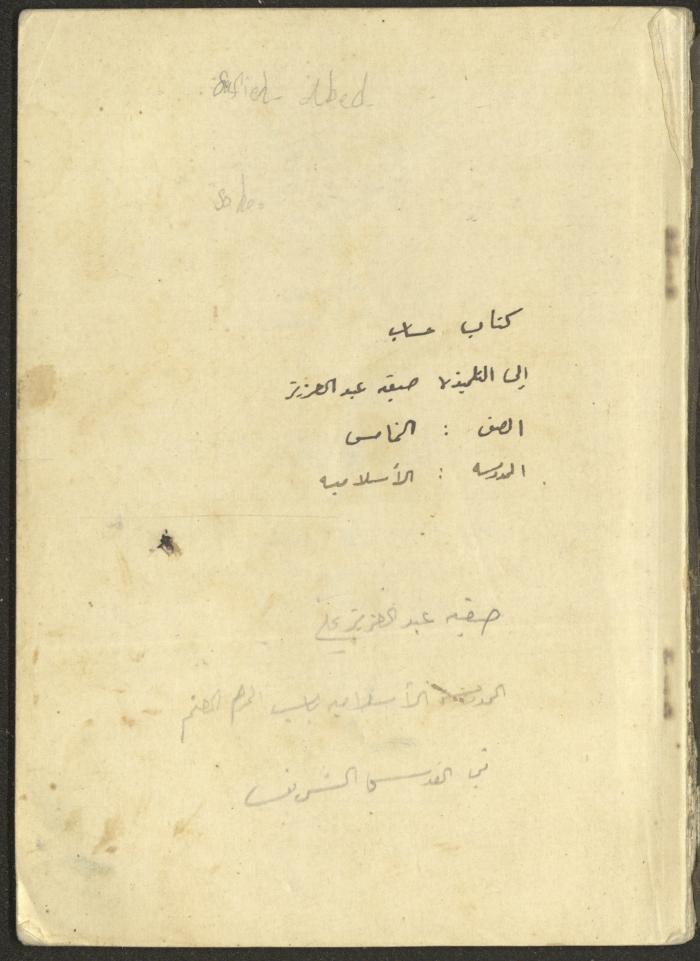 Safieh Abed
كتاب حساب
إلى التلميذة صفيه عبد العزيز
الصف : الخامس
المدرسه : الأسلاميه
صفيه عبد العزيز علي
المدرسة الأسلاميه بباب الحرم
في القدس الشريف